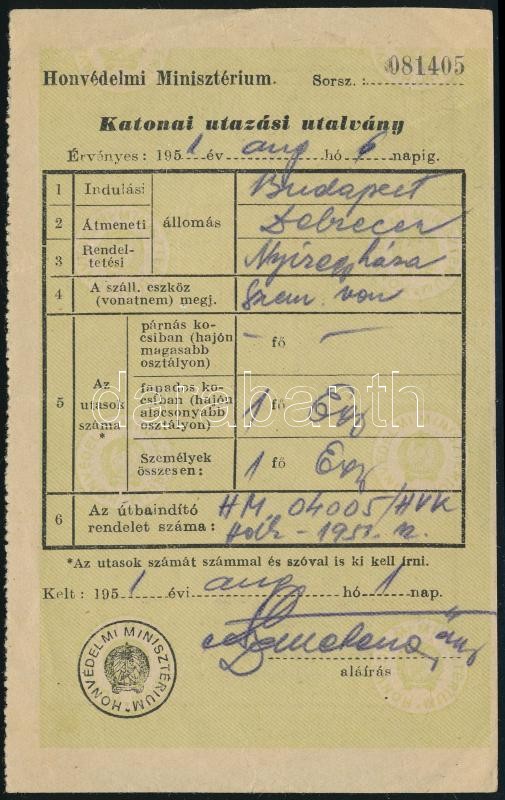 Honvédelmi Minisztérium. Sorsz.: 081405
Katonai utazási utalvány
Érvényes: 1951 év aug hó 6 napig.
1 Indulási állomás Budapest
2 Átmeneti Debrecen
3 Rendeltetési Nyíregyháza
4 A száll. eszköz (vonatnem) megj. Szem. von
5 Az utasok száma *
párnás kocsiban (hajón magasabb osztályon) – fő –
fapados kocsiban (hajón alacsonyabb osztályon) 1 fő Egy
Személyek összesen: 1 fő Egy
6 Az útbaindító rendelet száma: HM. 04005/HVK
1951.
*Az utasok számát számmal és szóval is ki kell írni.
Kelt: 1951 évi aug hó 1 nap.
aláírás
HONVÉDELMI MINISZTÉRIUM
darabanth